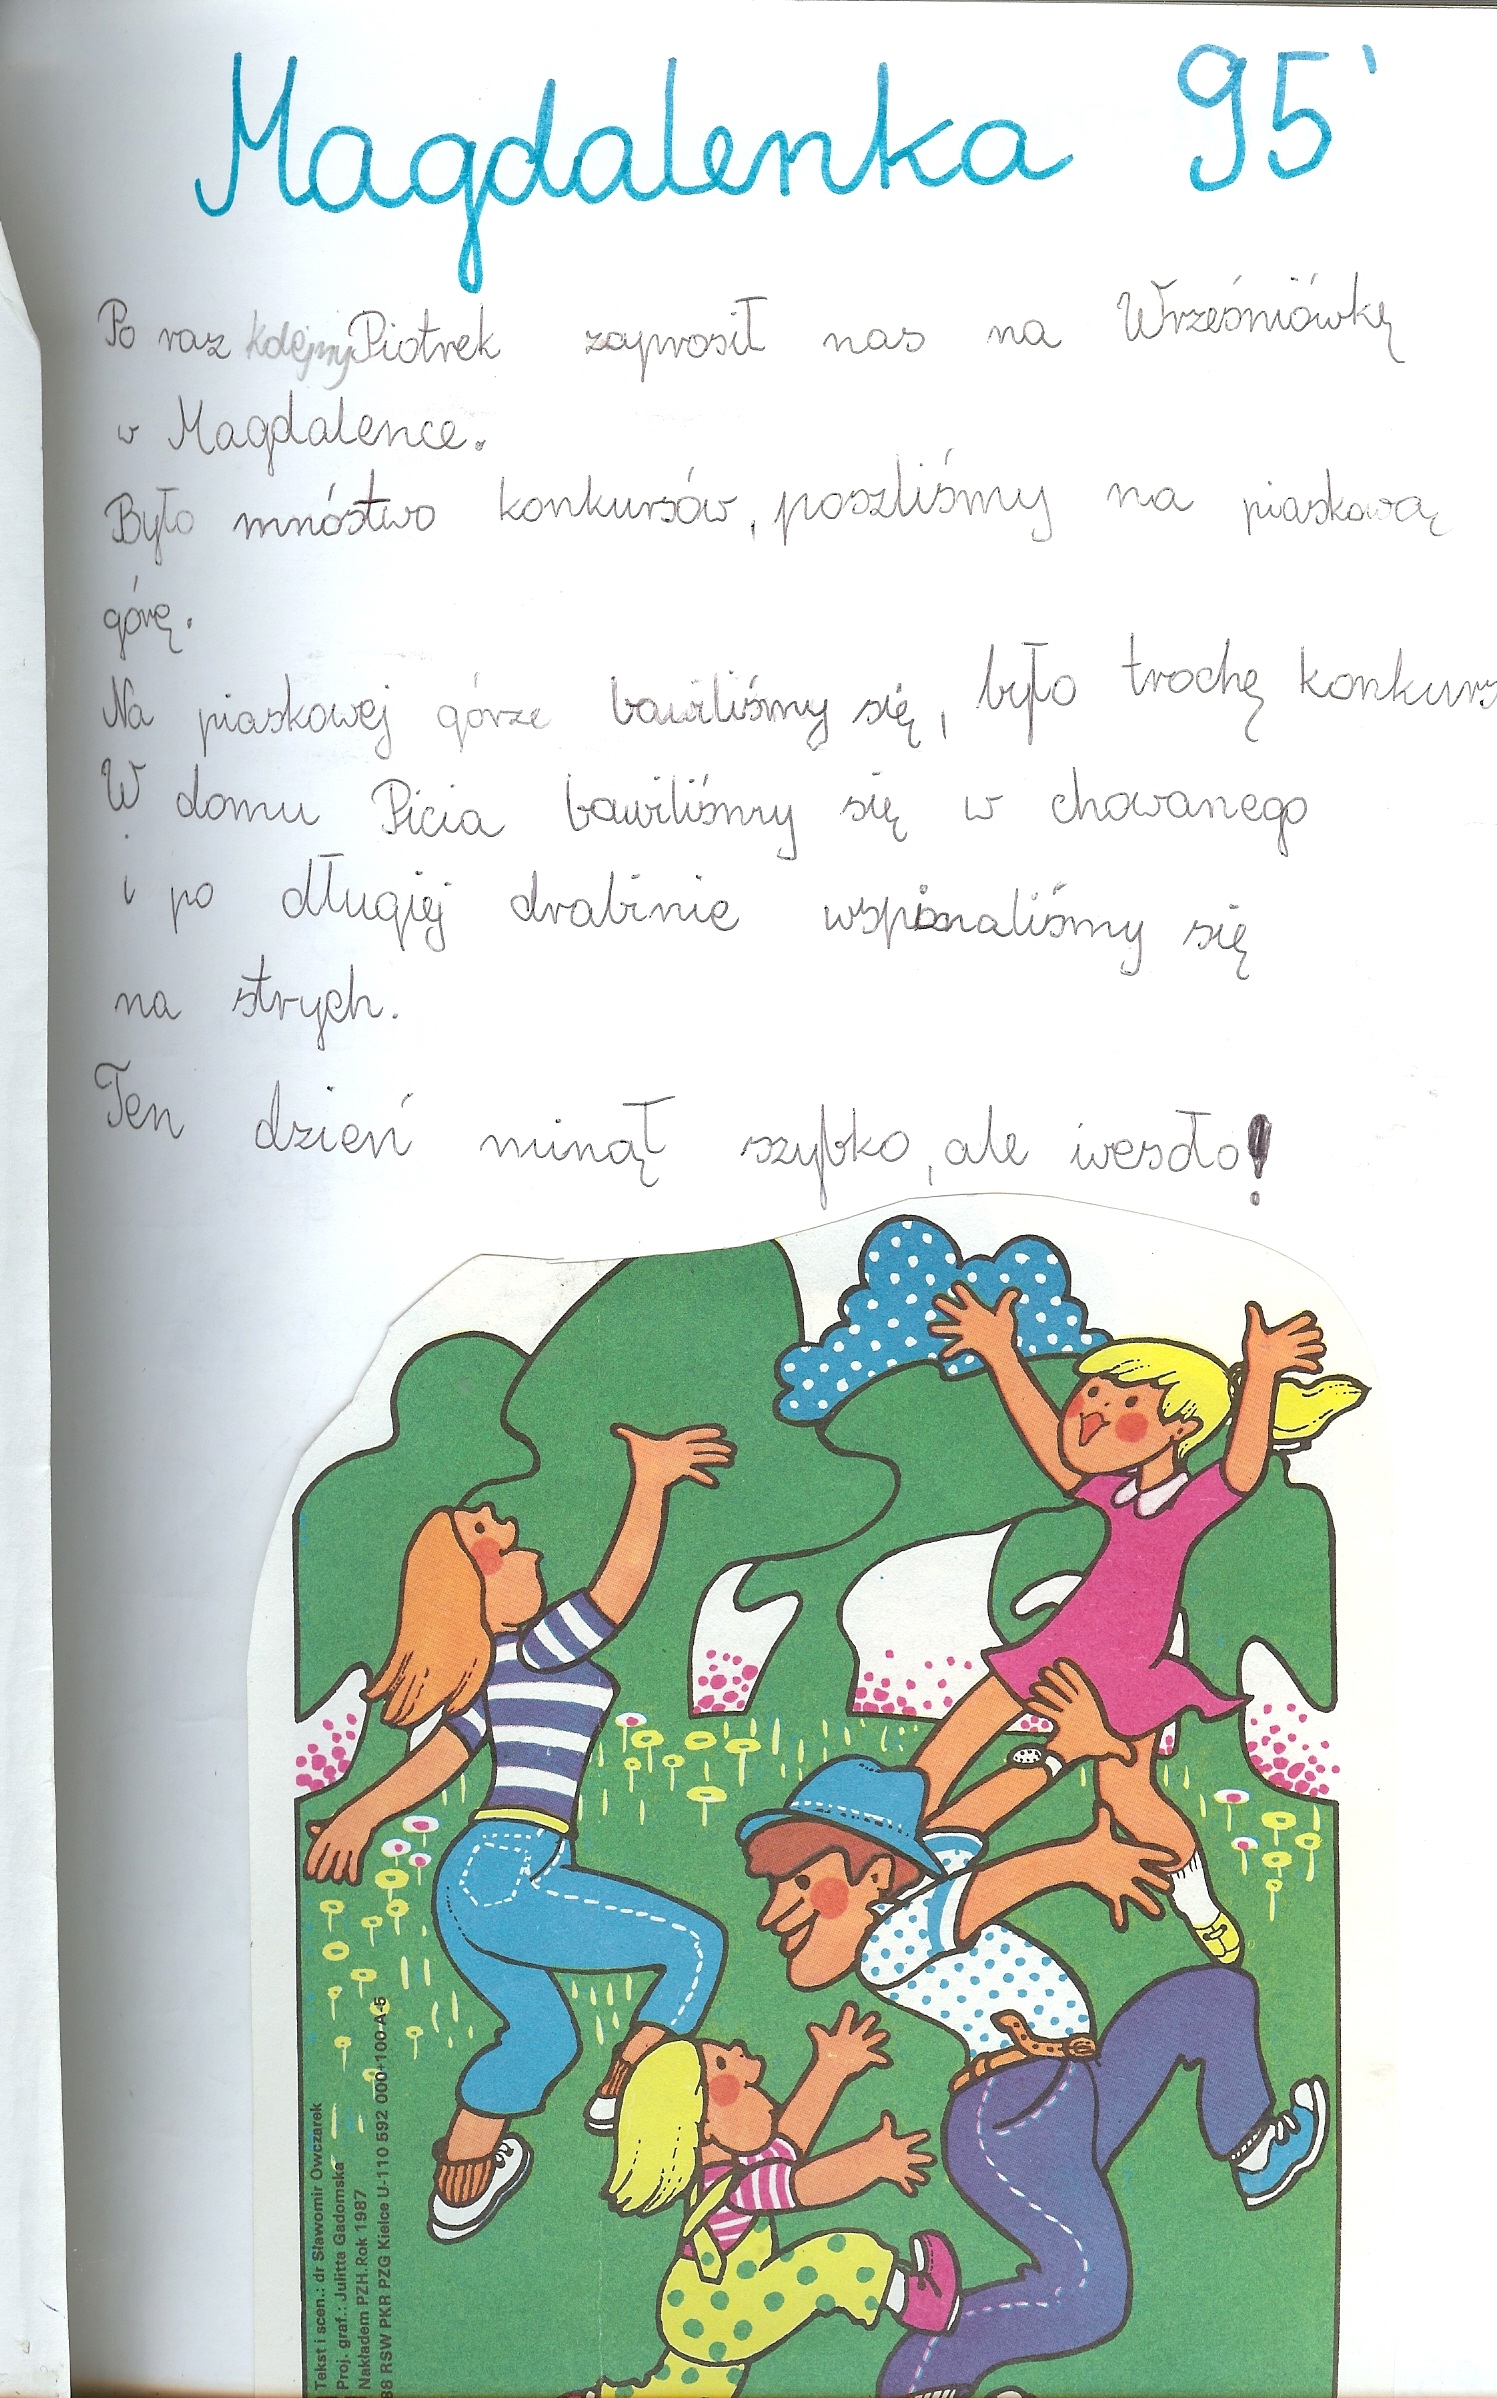 Magdalenka 95'
Po raz kolejny Piotrek zaprosił nas na Wrześniówkę
w Magdalence.
Było mnóstwo konkursów, poszliśmy na piaskową
górę.
Na piaskowej górze bawiliśmy się, było trochę konkurs
W domu Picia bawiliśmy się w chowanego
i po długiej drabinie wspinaliśmy się
na strych.
Ten dzień minął szybko, ale wesoło!
Tekst i scen.: dr Sławomir Owczarek
Proj. graf.: Julitta Gadomska
Nakładem PZH. Rok 1987
88 RSW PKR PZG Kielce U-110 592 000+100 A-5